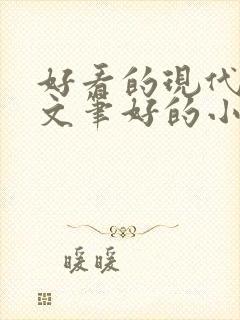 好看的现代
文筆好的小
暖暖